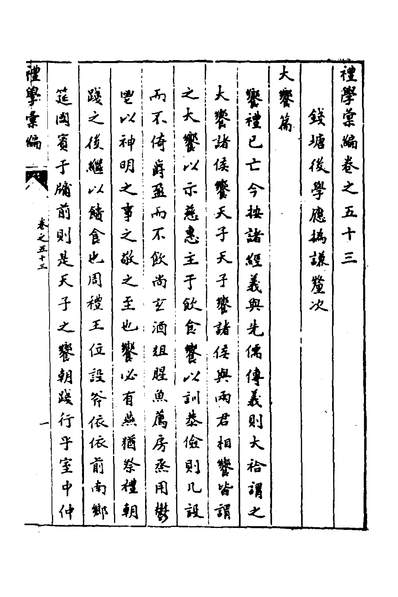 禮學彙編卷之五十三
錢塘後學應撝謙釐次
大饗篇
饗禮已亡今按諸經義與先儒傳義則大祫謂之
大饗諸侯饗天子天子饗諸侯與兩君相饗皆謂
之大饗以示慈惠主于飲食饗以訓恭儉則几設
而不倚爵盈而不飲尚玄酒俎腥魚薦房烝用鬱
鬯以神明之事之敬之至也饗必有燕猶祭禮朝
踐之後繼以饋食也周禮王位設斧依依前南鄉
筵國賓于牖前則是天子之饗朝踐行乎室中仲
禮學彙編
卷之五十三
一